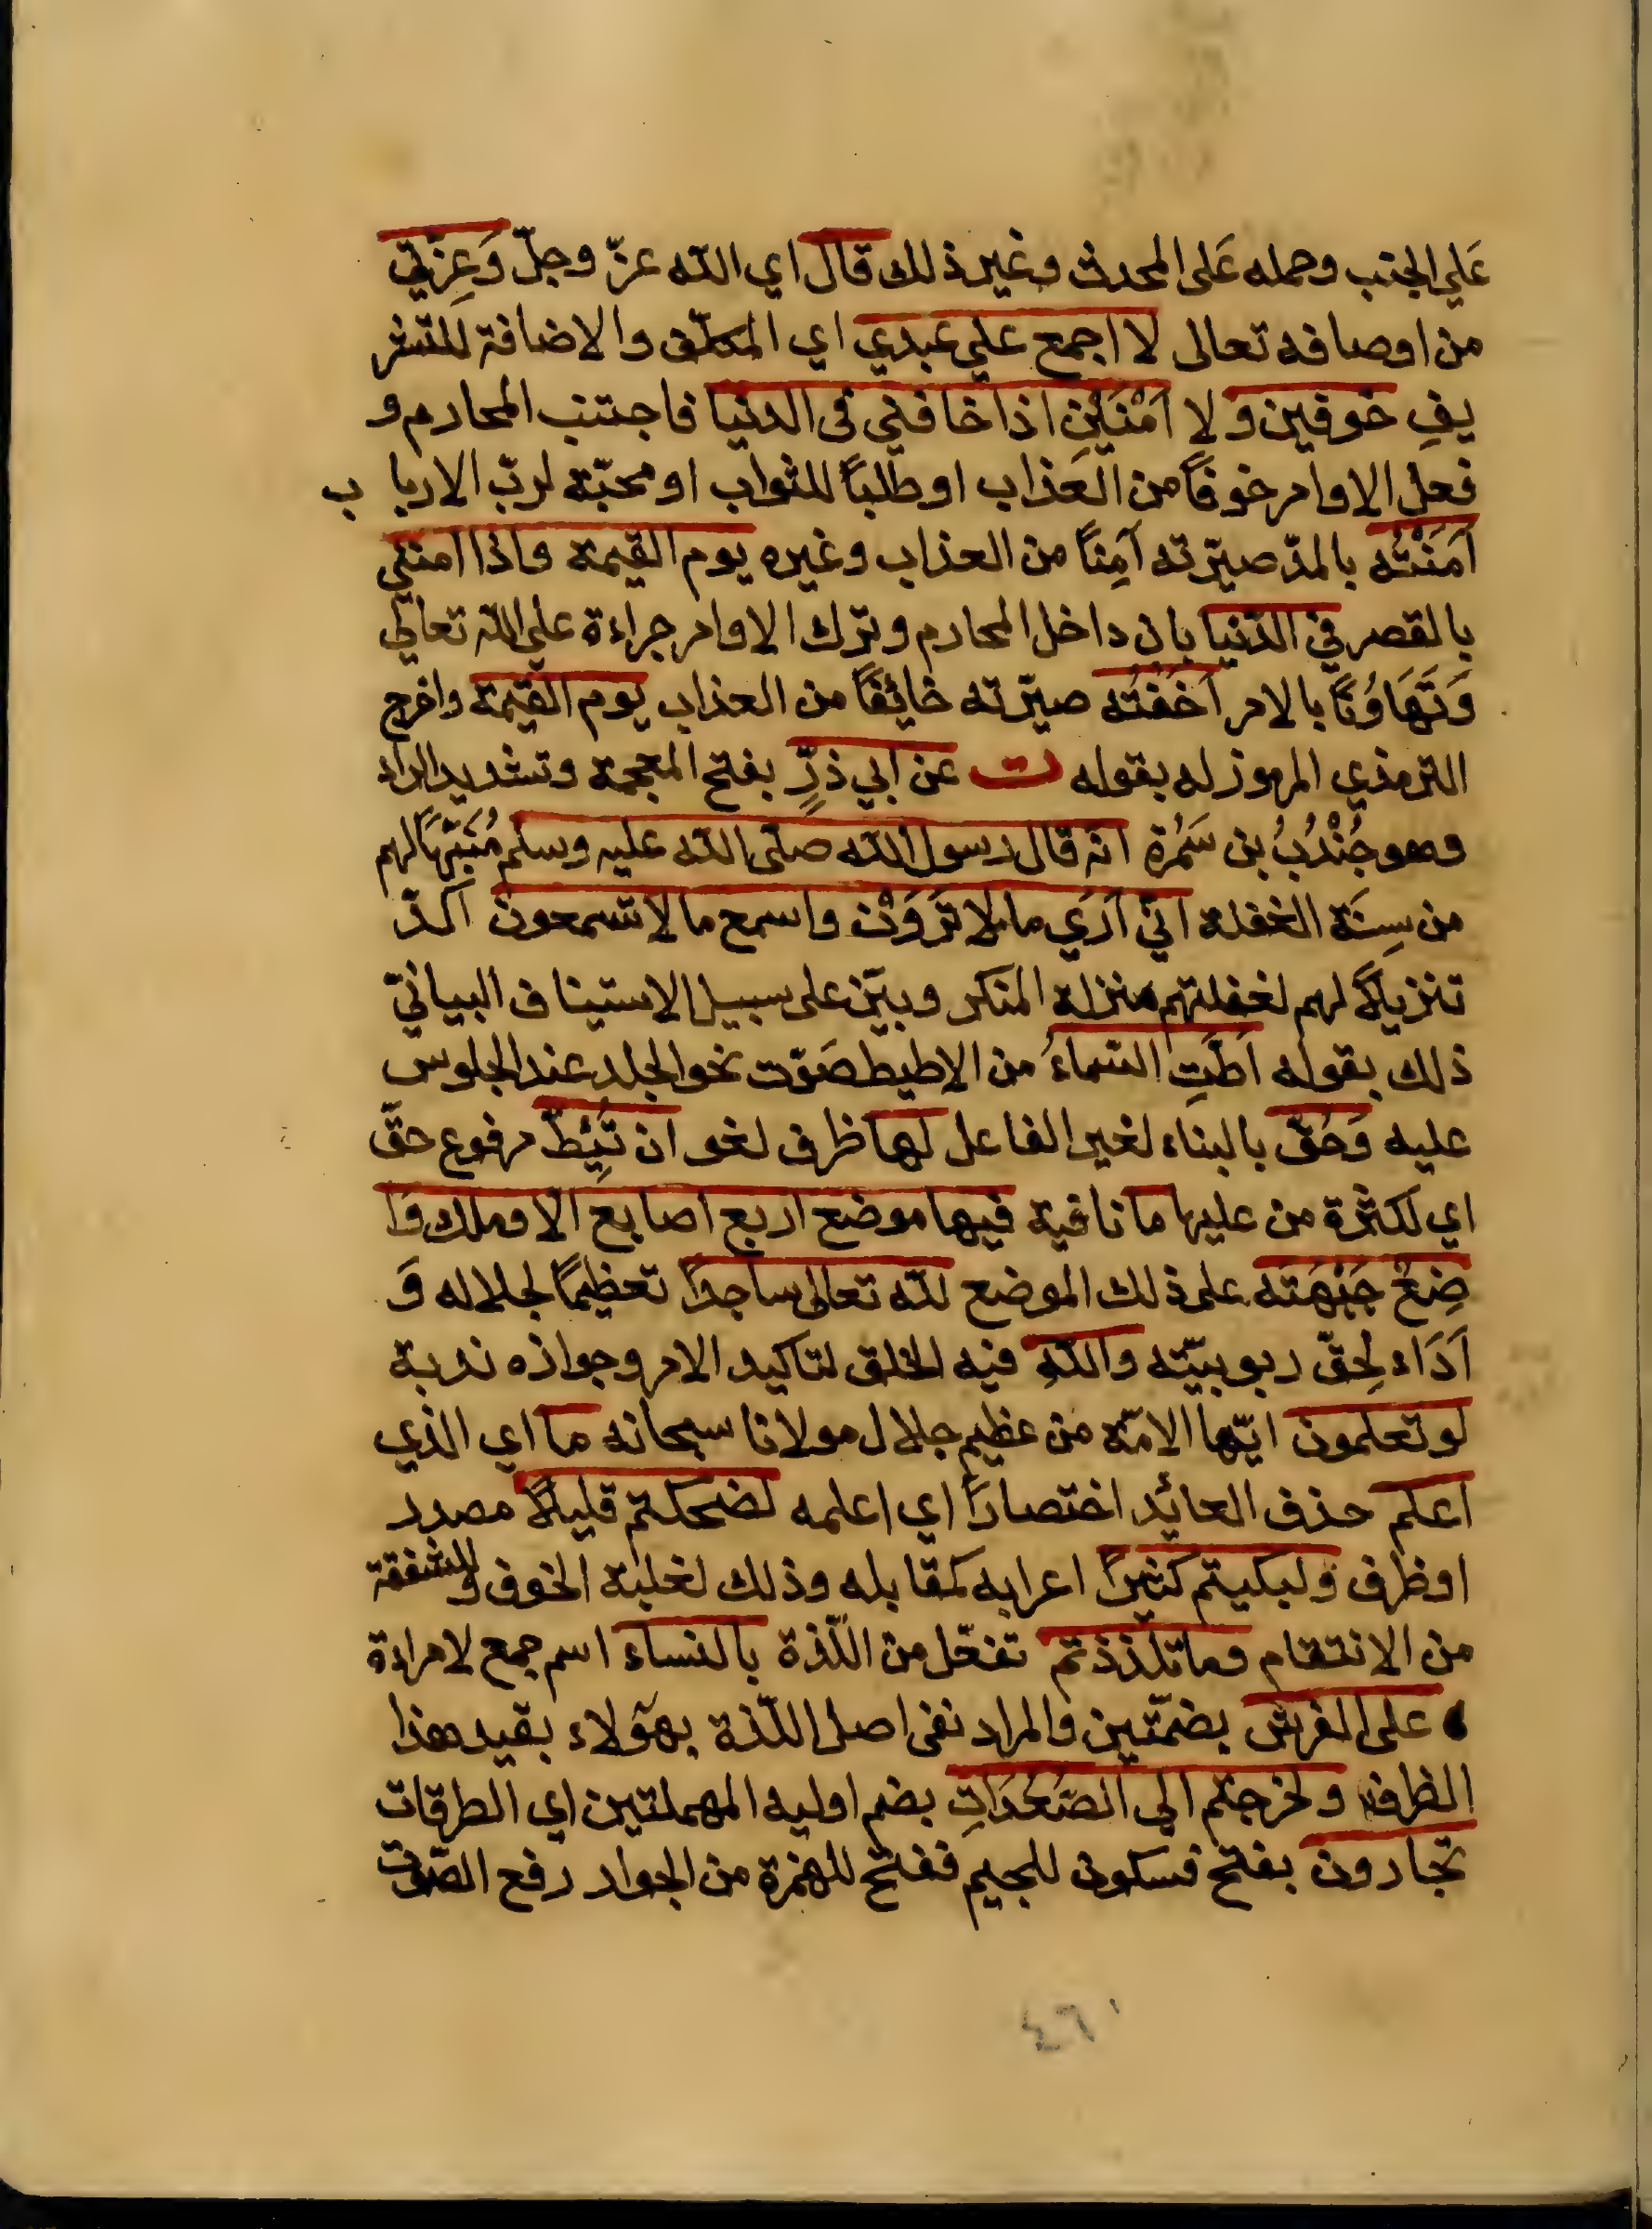 عَلي الجنب وحمله عَلى المحدث وغير ذلك قال اي الله عزّ وجلّ وَعِزّتي
من اوصافه تعالى لا اجمع علي عبدي اي المكلّف والاضافة للتشر
يفِ خوفين ولا اَمْنَيْنِ اذا خافني فى الدنيا فاجتنب المحارم و
فعل الاوامر خوفاً من العَذاب او طلباً للثواب او محبّة لربّ الاربا ب
آمَنْتُه بالمدّ صيّرته آمِناً من العذاب وغيره يوم القيمة واذا امنني
بالقصر في الدّنيا بان داخل المحارم وترك الاوامر جراءة علي الله تعالي
وَتَهَاوُنًا بالامر اَخَفْتُه صيّرته خائِفًا من العذاب يوم القيمة واخرج
الترمذي المرموز له بقوله ت عن ابي ذرٍّ بفتح المعجمة وتشديد الراء
وهو جُنْدُبُ بن سَمُرة انه قال رسول الله صلى الله عليه وسلم مُنَبّهًا لهم
من سِنَة الغفلة انّي اَرَي ما لا تَرَوْن واسمع ما لا تسمعون اكدّ
تنزيلاً لهم لغفلتهم منزلة المنكر وبيّن على سبيل الاستيناف البيانيّ
ذلك بقوله اَطّتِ السّماءُ من الاطيط صَوّت نحو الجلد عند الجلوس
عليه وَحُقّ بالبناء لغير الفاعل لها ظرف لغو ان تَئِطّ مرفوع حقّ
اي لكثرة من عليها ما نافية فيها موضع اربع اصابع الا وملك وَا
ضِعٌ جَبْهَتَه على ذلك الموضع لله تعالى ساجدًا تعظيمًا لجلاله وَ
اَدَاء لِحقّ ربوبيّته والله فيه الخلق لتاكيد الامر وجوازه ندبة
لو تعلمون ايّها الامّة من عظيم جلال مولانا سبحانه ما اي الذي
اعلم حذف العائد اختصارًا اي اعلمه لضحكتم قليلاً مصدر
او ظرف ولبكيتم كثيرًا اعرابه كمقابله وذلك لغلبة الخوف والشفقة
من الانتقام وما تلذذتم تفعّل من اللّذة بالنساء اسم جمع لامراءة
على الفرش بضمّتين والمراد نفى اصل اللّذة بهؤلاء بقيد هذا
الظرف ولخرجتم الي الصّعُدَاتِ بضم اوليه المهملتين اي الطرقات
تجارون بفتح فسكون للجيم ففتح للهمزة من الجوار رفع الصّوت
٤٦١